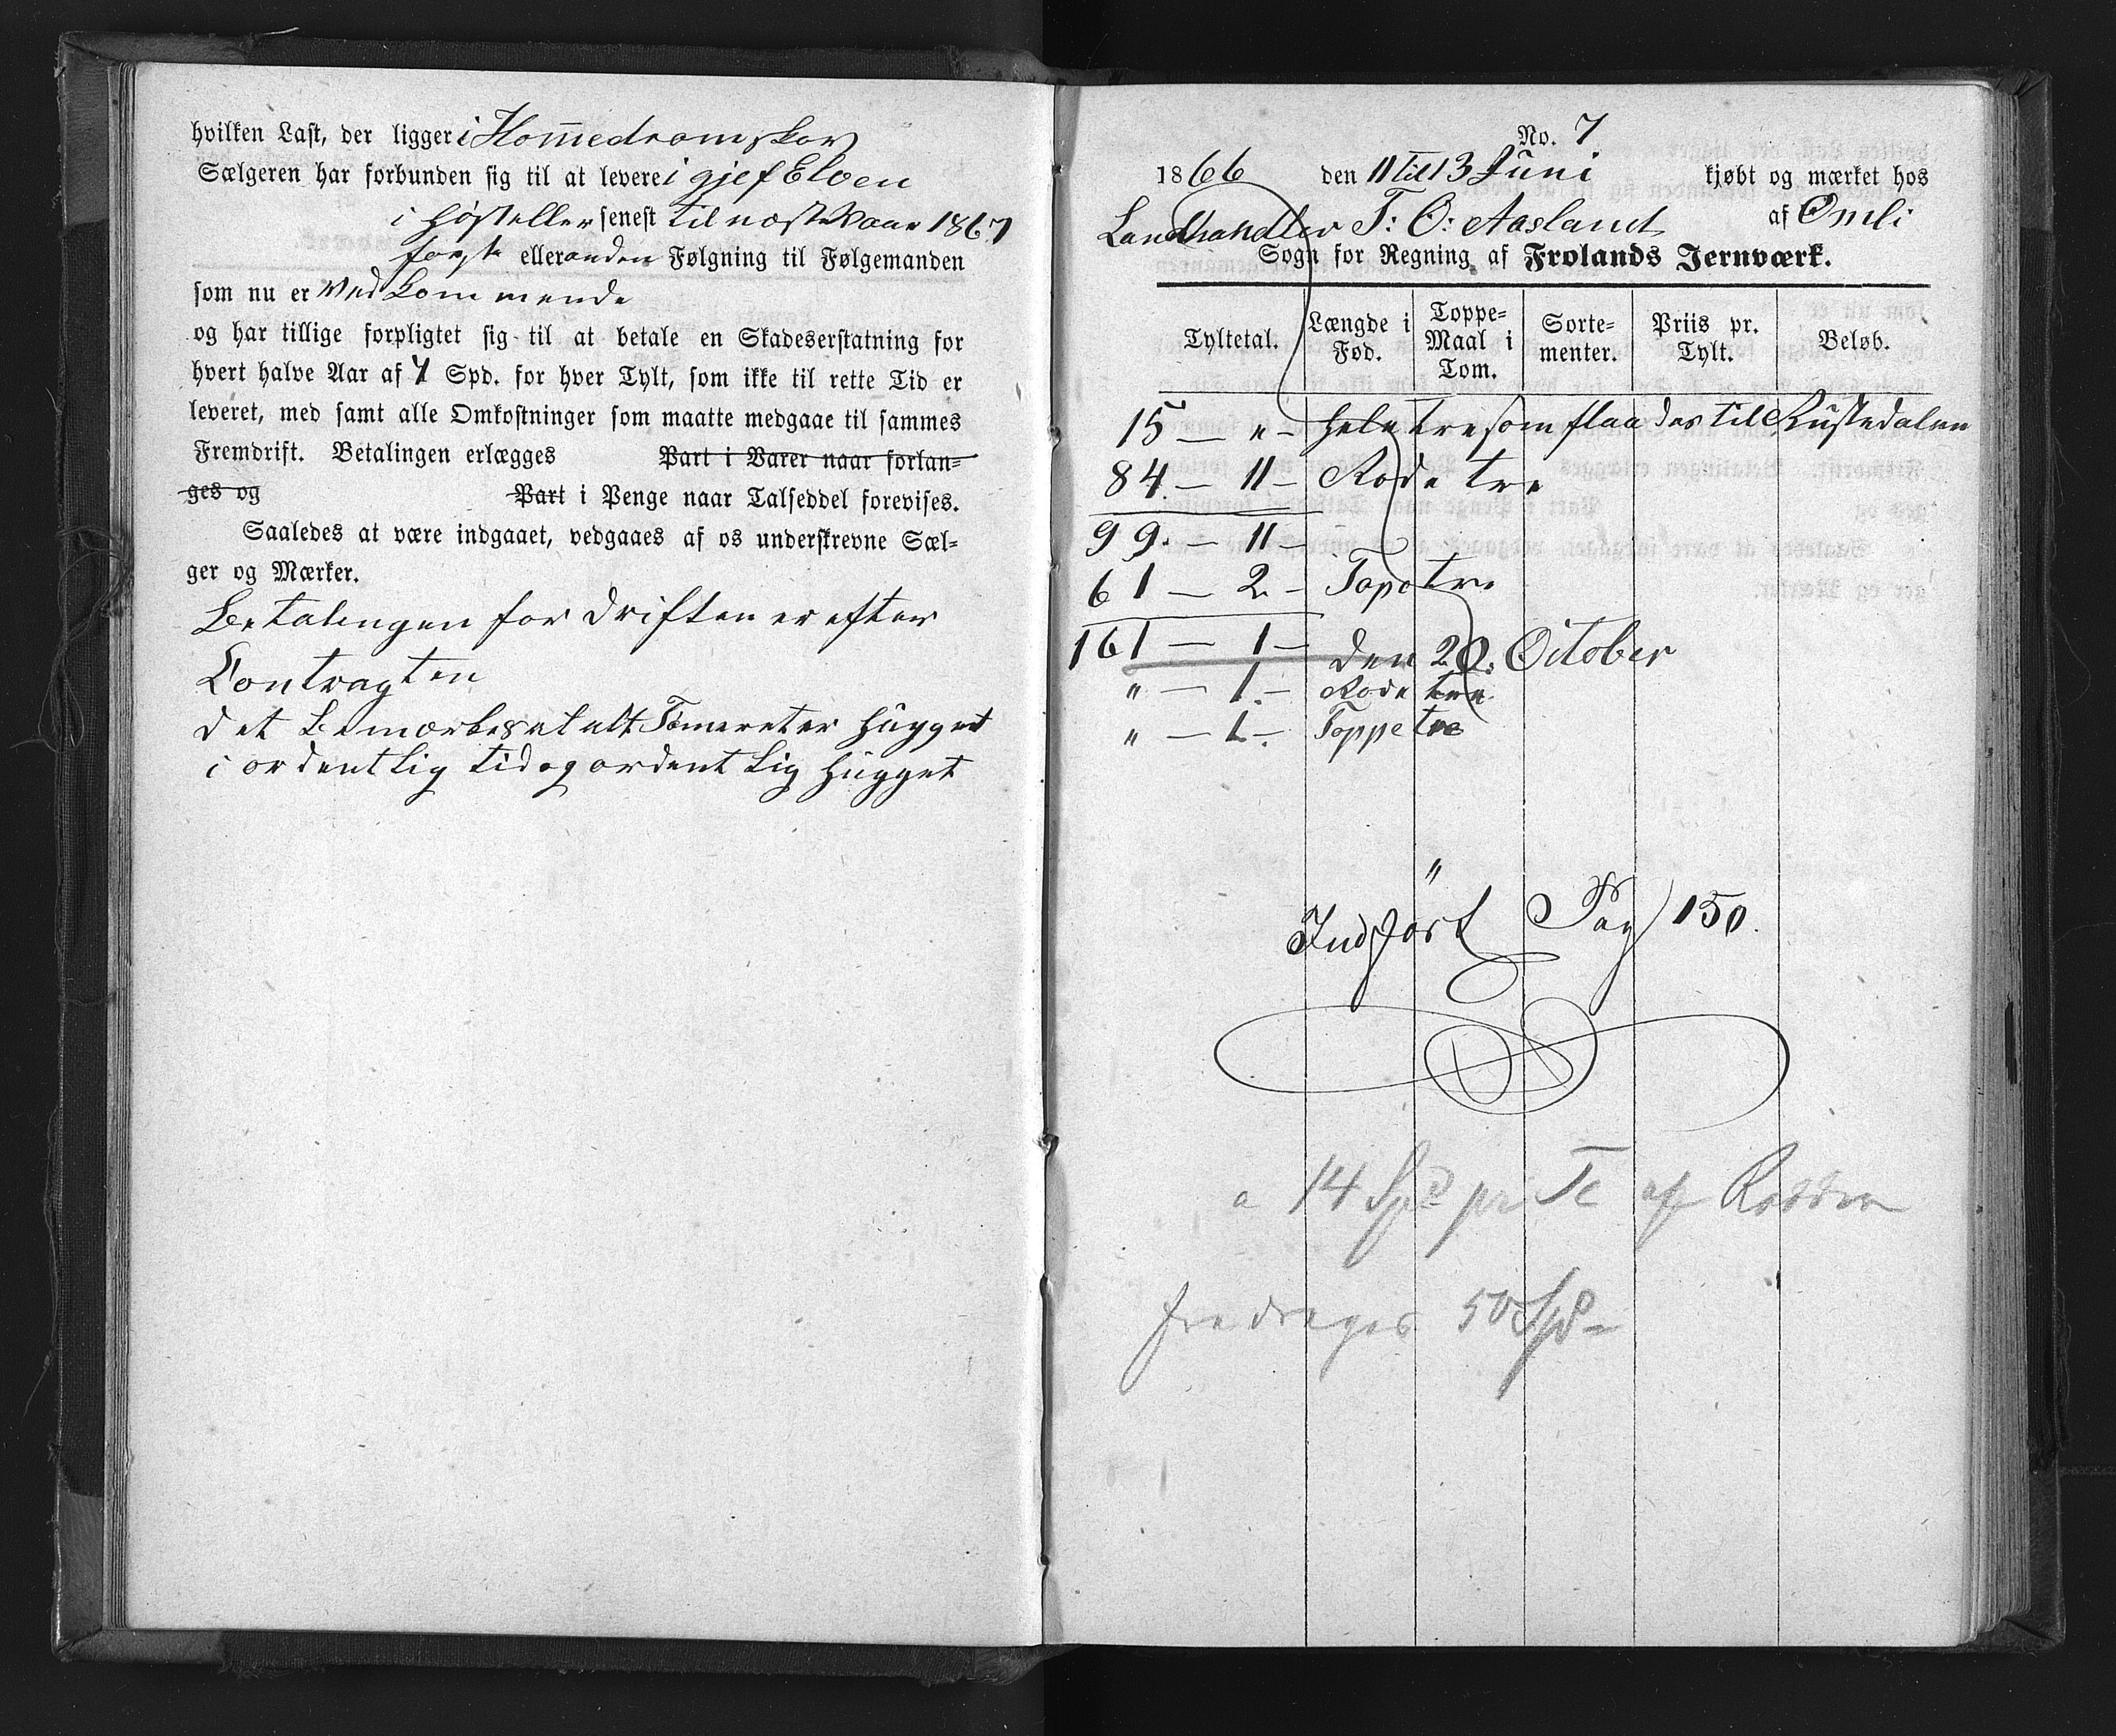 hvilken Last, der ligger i Hommedramskov
Sælgeren har forbunden sig til at levere i gjef Elven
i høst eller senest til næste Vaar 1867
første eller anden Følgning til Følgemanden
som nu er Vedkommende
og har tillige forpligtet sig til at betale en Skadeserstatning for
hvert halve Aar af 1 Spd. for hver Tylt, som ikke til rette Tid er
leveret, med samt alle Omkostninger som maatte medgaae til sammes
Fremdrift. Betalingen erlægges Part i Varer naar forlan-
ges og Part i Penge naar Talseddel forevises.
Saaledes at være indgaaet, vedgaaes af os underskrevne Sæl-
ger og Mærker.
Betalingen for Driften er efter
Contragten
det Bemærkes at alt Tømeret er hugget
i ordentlig tid og ordentlig hugget
No. 7
1866 den 11 til 13 Juni kjøbt og mærket hos
Landhandler T: O: Aasland af Omli
Sogn for Regning af Frolands Jernværk.
Tyltetal. Længde i Fod. Toppe-Maal i Tom. Sorte-menter. Priis pr. Tylt. Beløb.
15 — " – hele tre som flaades til Rustedalen
84 — 11 – Rode tre
99. — 11 –
61 — 2 – Topetre
161 — 1 –
den 20. October
" — 1. – Rode tre
" — 1. – Toppetre
"
Indført Pag 150.
a 14 Spd pr Tt af
fradrages 50 Spd –